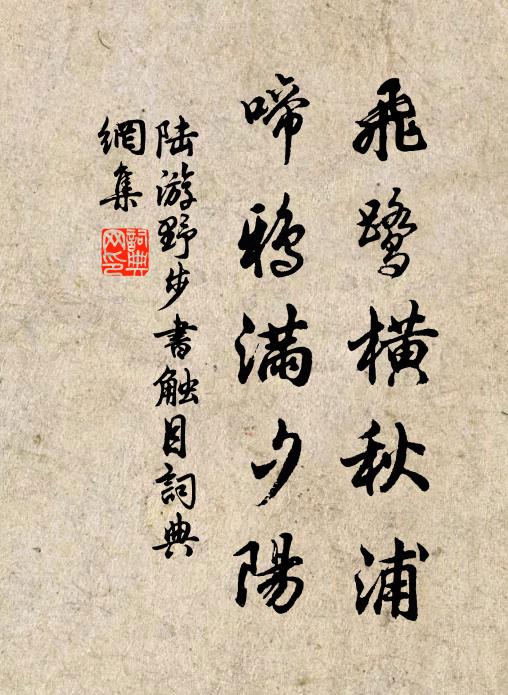 飛鷺橫秋浦
啼鴉滿夕陽
陆游野步書触目詞典
網集
詞典网印